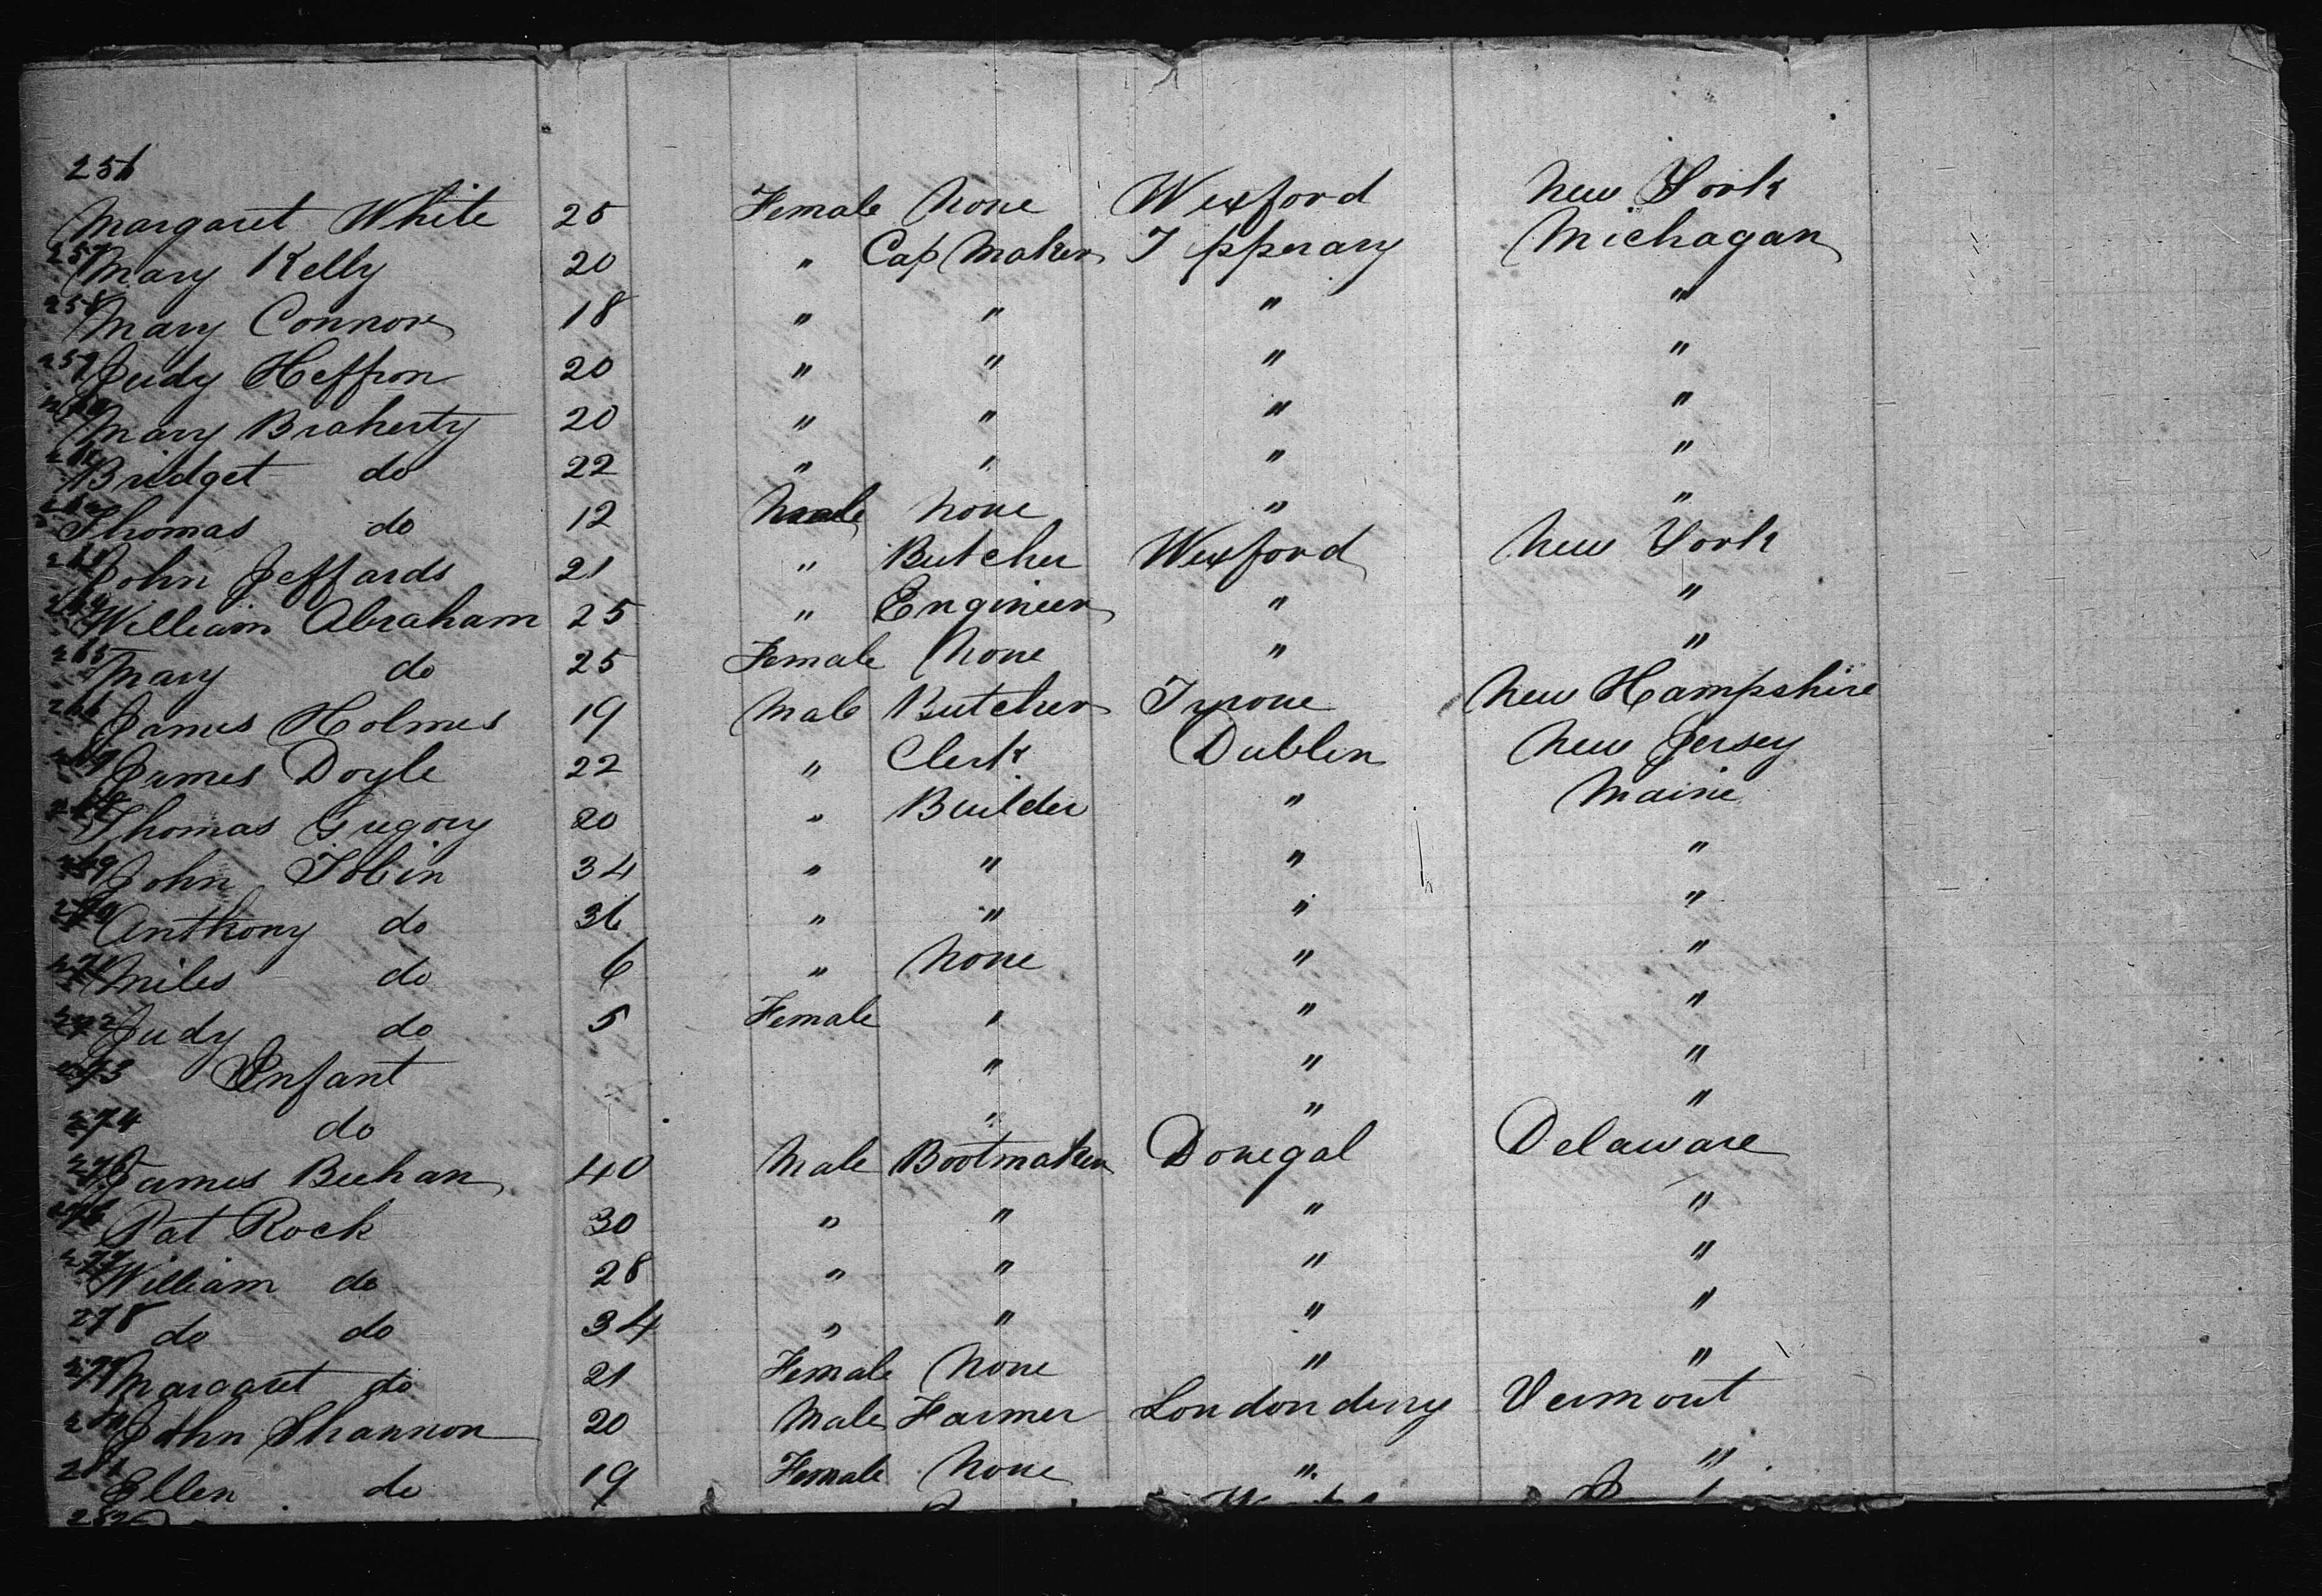 256
Margaret White 25 Female None Wexford New York
257 Mary Kelly 20 " Cap Maker Tipperary Michagan
258 Mary Connor 18 " " " "
259 Judy Heffron 20 " " " "
260 Mary Braherty 20 " " " "
261 Bridget do 22 " " " "
262 Thomas do 12 Male None " "
263 John Jeffards 21 " Butcher Wexford New York
264 William Abraham 25 " Engineer " "
265 Mary do 25 Female None " "
266 James Holmes 19 Male Butcher Tyrone New Hampshire
267 James Doyle 22 " Clerk Dublin New Jersey
268 Thomas Gregory 20 " Builder " Maine
269 John Tobin 34 " " " "
270 Anthony do 36 " " " "
271 Miles do 6 " None " "
272 Judy do 5 Female " " "
273 Infant " " "
274 do " " "
275 James Beehan 40 Male Bootmaker Donegal Delaware
276 Pat Rock 30 " " " "
277 William do 28 " " " "
278 do do 34 " " " "
279 Margaret do 21 Female None " "
280 John Shannon 20 Male Farmer Londonderry Vermont
281 Ellen do 19 Female None " "
282